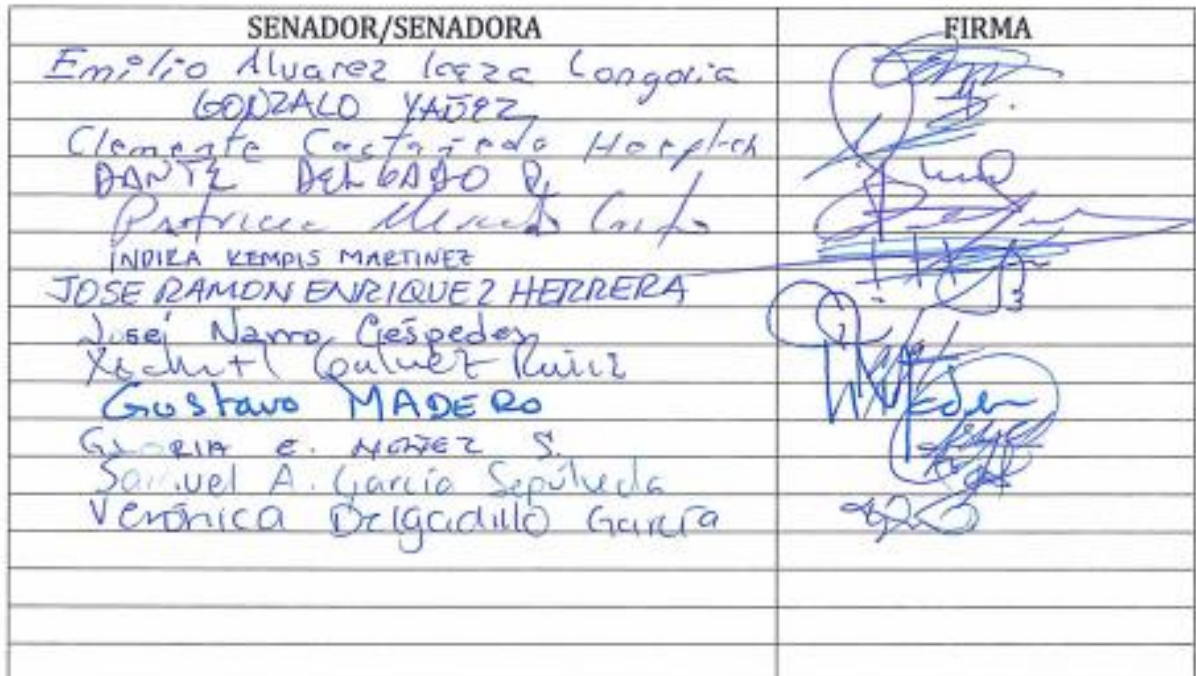 SENADOR/SENADORA FIRMA
Emilio Alvarez Icaza Longoria
GONZALO YAÑEZ
Clemente Castañeda Hoeflich
DANTE DELGADO R.
Patricia Mercado Castro
INDIRA KEMPIS MARTINEZ
JOSE RAMON ENRIQUEZ HERRERA
José Narro Céspedes
Xóchitl Gálvez Ruiz
Gustavo MADERO
GLORIA E. NUÑEZ S.
Samuel A. García Sepúlveda
Verónica Delgadillo García